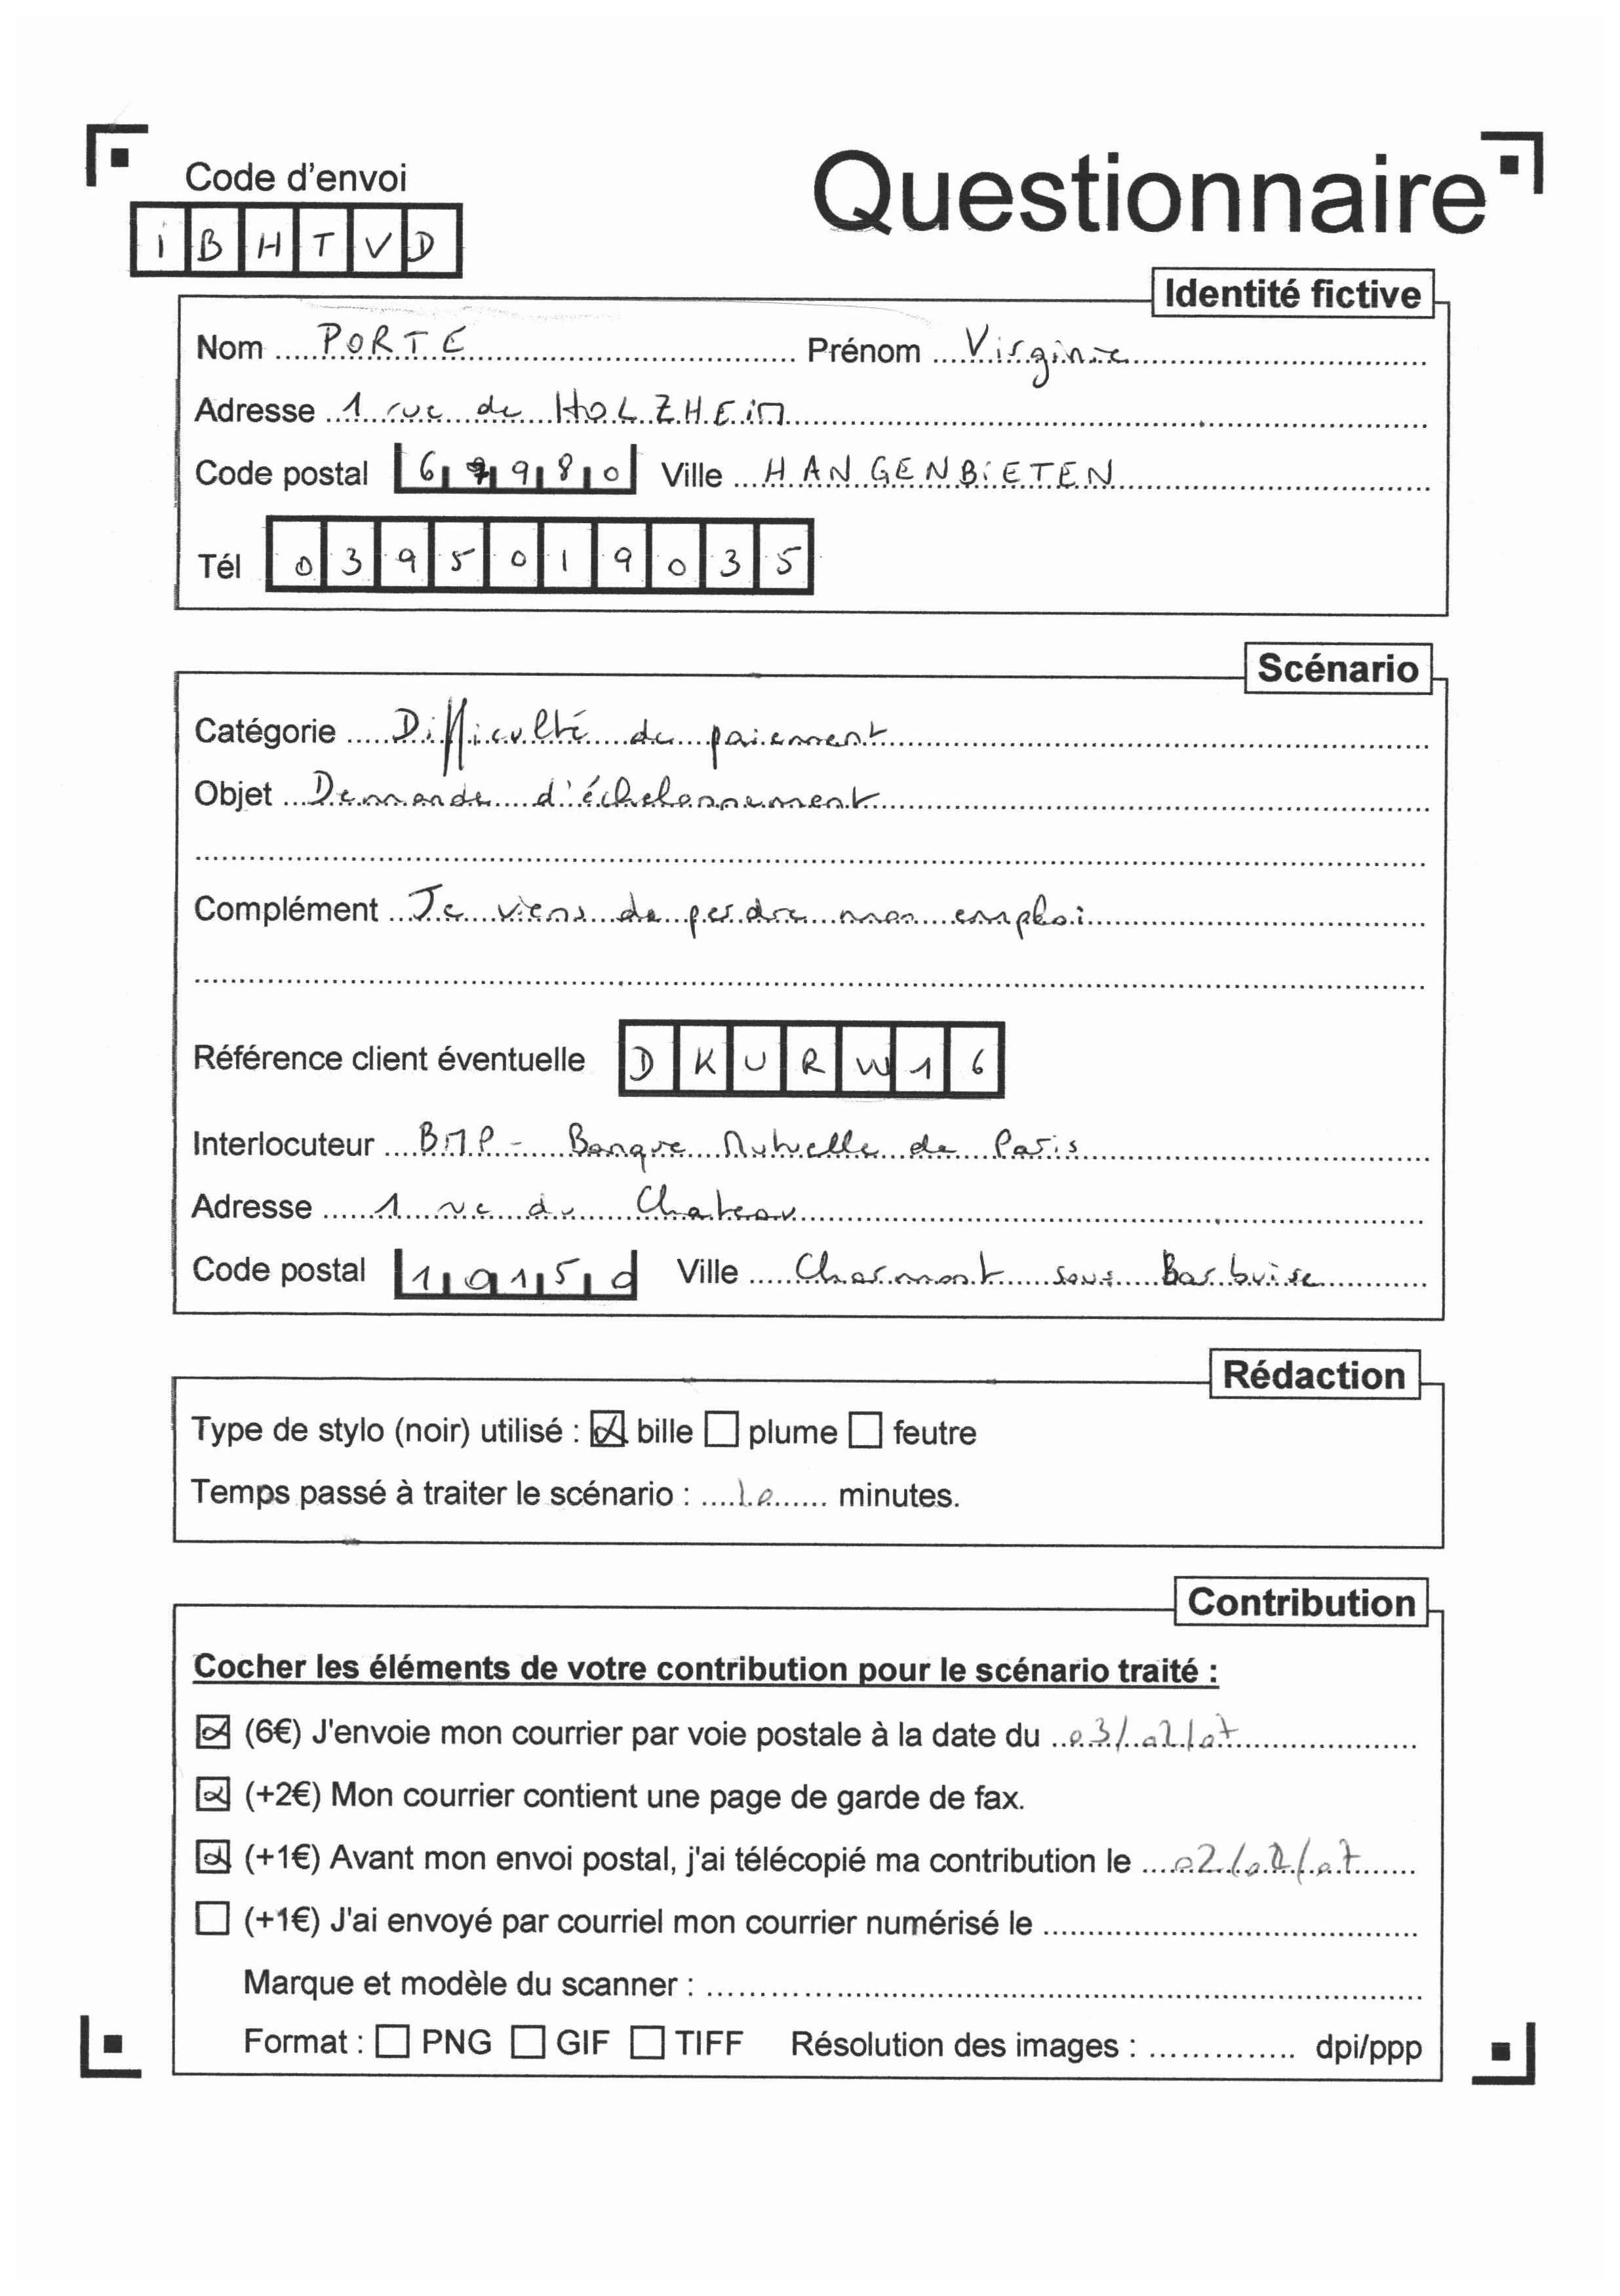 Code d'envoi
Questionnaire
i B H T V D
Identité fictive
Nom PORTE Prénom Virginie
Adresse 1 rue de HOLZHEiM
Code postal 67980 Ville HANGENBiETEN
Tél 0395019035
Scénario
Catégorie Difficulté de paiement
Objet Demande d'échelonnement
Complément Je viens de perdre mon emploi
Référence client éventuelle D K U R W 1 6
Interlocuteur BMP - Banque Mutuelle de Paris
Adresse 1 rue du Chateau
Code postal 10150 Ville Charmont sous Barbuise
Rédaction
Type de stylo (noir) utilisé : ☒ bille ☐ plume ☐ feutre
Temps passé à traiter le scénario : 10 minutes.
Contribution
Cocher les éléments de votre contribution pour le scénario traité :
☒ (6€) J'envoie mon courrier par voie postale à la date du 03/02/07
☒ (+2€) Mon courrier contient une page de garde de fax.
☒ (+1€) Avant mon envoi postal, j'ai télécopié ma contribution le 02/02/07
☐ (+1€) J'ai envoyé par courriel mon courrier numérisé le
Marque et modèle du scanner :
Format : ☐ PNG ☐ GIF ☐ TIFF Résolution des images : dpi/ppp